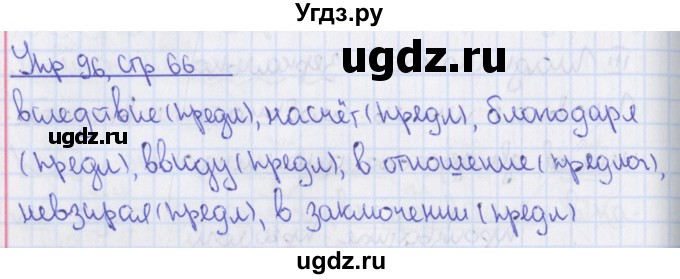 Угдз.ру
Упр 96, стр 66
ugdz.ru
вследствие (предл), насчёт (предл), благодаря
ugdz.ru
(предл), ввиду (предл), в отношение (предлог),
невзирая (предл), в заключении (предл)
ugdz.ru
ugdz.ru